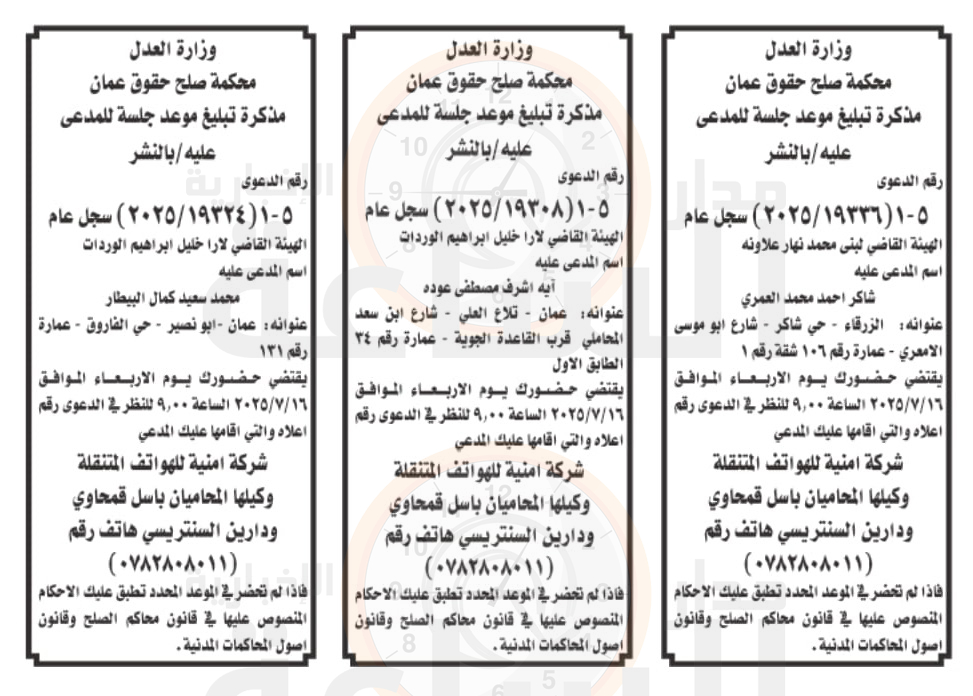 وزارة العدل
محكمة صلح حقوق عمان
مذكرة تبليغ موعد جلسة للمدعى
عليه/بالنشر
رقم الدعوى
٥-١(٢٠٢٥/١٩٣٣٦) سجل عام
الهيئة القاضي لبنى محمد نهار علاونه
اسم المدعى عليه
شاكر احمد محمد العمري
عنوانه: الزرقاء - حي شاكر - شارع ابو موسى
الامعري - عمارة رقم ١٠٦ شقة رقم ١
يقتضي حضورك يوم الاربعاء الموافق
٢٠٢٥/٧/١٦ الساعة ٩,٠٠ للنظر في الدعوى رقم
اعلاه والتي اقامها عليك المدعي
شركة امنية للهواتف المتنقلة
وكيلها المحاميان باسل قمحاوي
ودارين السنتريسي هاتف رقم
(٠٧٨٢٨٠٨٠١١)
فاذا لم تحضر في الموعد المحدد تطبق عليك الاحكام
المنصوص عليها في قانون محاكم الصلح وقانون
اصول المحاكمات المدنية.
وزارة العدل
محكمة صلح حقوق عمان
مذكرة تبليغ موعد جلسة للمدعى
عليه/بالنشر
رقم الدعوى
٥-١(٢٠٢٥/١٩٣٠٨) سجل عام
الهيئة القاضي لارا خليل ابراهيم الوردات
اسم المدعى عليه
آيه اشرف مصطفى عوده
عنوانه: عمان - تلاع العلي - شارع ابن سعد
المحاملي قرب القاعدة الجوية - عمارة رقم ٣٤
الطابق الاول
يقتضي حضورك يوم الاربعاء الموافق
٢٠٢٥/٧/١٦ الساعة ٩,٠٠ للنظر في الدعوى رقم
اعلاه والتي اقامها عليك المدعي
شركة امنية للهواتف المتنقلة
وكيلها المحاميان باسل قمحاوي
ودارين السنتريسي هاتف رقم
(٠٧٨٢٨٠٨٠١١)
فاذا لم تحضر في الموعد المحدد تطبق عليك الاحكام
المنصوص عليها في قانون محاكم الصلح وقانون
اصول المحاكمات المدنية.
وزارة العدل
محكمة صلح حقوق عمان
مذكرة تبليغ موعد جلسة للمدعى
عليه/بالنشر
رقم الدعوى
٥-١(٢٠٢٥/١٩٣٢٤) سجل عام
الهيئة القاضي لارا خليل ابراهيم الوردات
اسم المدعى عليه
محمد سعيد كمال البيطار
عنوانه: عمان -ابو نصير - حي الفاروق - عمارة
رقم ١٣١
يقتضي حضورك يوم الاربعاء الموافق
٢٠٢٥/٧/١٦ الساعة ٩,٠٠ للنظر في الدعوى رقم
اعلاه والتي اقامها عليك المدعي
شركة امنية للهواتف المتنقلة
وكيلها المحاميان باسل قمحاوي
ودارين السنتريسي هاتف رقم
(٠٧٨٢٨٠٨٠١١)
فاذا لم تحضر في الموعد المحدد تطبق عليك الاحكام
المنصوص عليها في قانون محاكم الصلح وقانون
اصول المحاكمات المدنية.